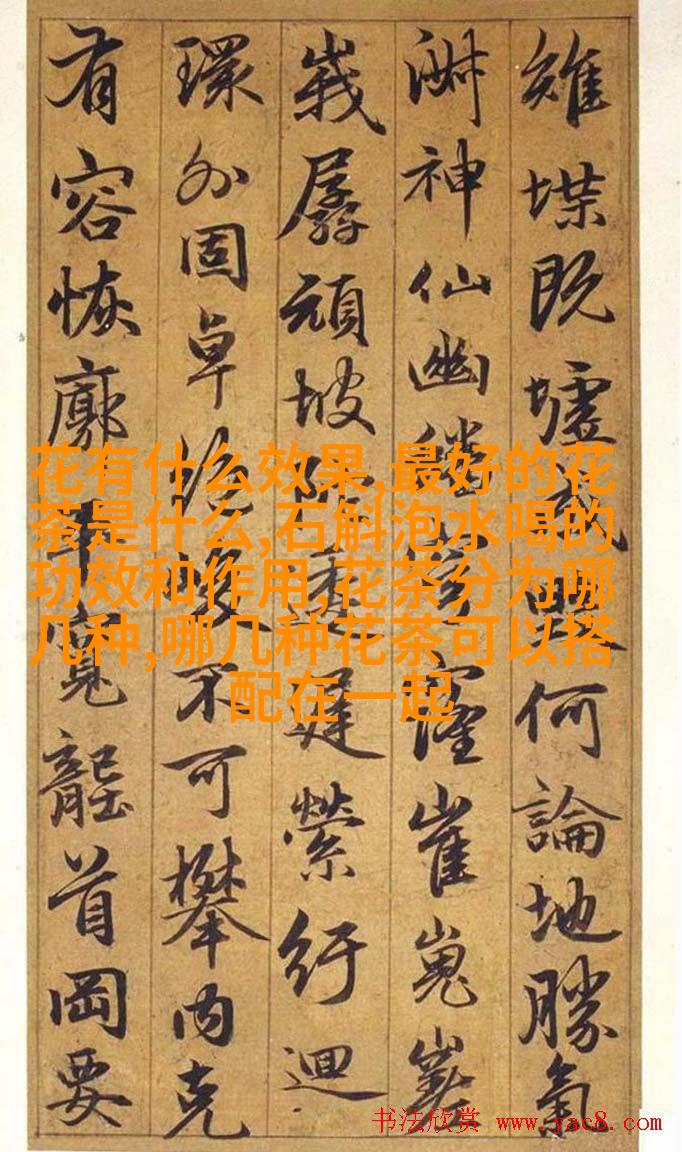 雉堞既墟何論地勝氣
淋神仙幽窿崔嵬
峩孱頑坡陀縈紆迴
環外固卓絶峻不可攀内克
有容恢廓首岡要
花有什么效果,最好的花
茶是什么,石斛泡水喝的
功效和作用,花茶分为哪
几种,哪几种花茶可以搭
配在一起
书法欣赏 www.yac8.com